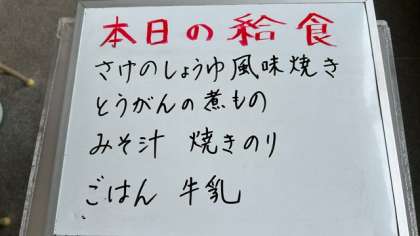 本日の給食
さけのしょうゆ風味焼き
とうがんの煮もの
みそ汁 焼きのり
ごはん 牛乳